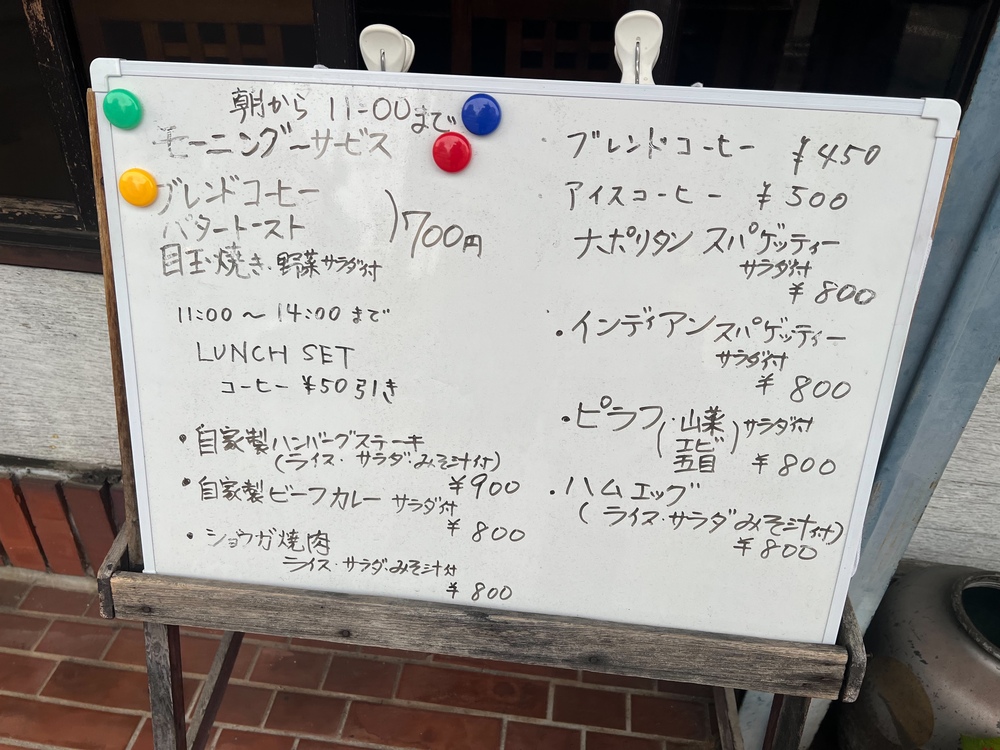 朝から 11:00まで
モーニングーサービス
ブレンドコーヒー
バタートースト
目玉焼き・野菜サラダ付
)700円
11:00 〜 14:00 まで
LUNCH SET
コーヒー ¥50引き
・自家製ハンバーグステーキ
(ライス・サラダみそ汁付)
¥900
・自家製ビーフカレー サラダ付
¥800
・ショウガ焼肉
ライス・サラダ・みそ汁付
¥800
ブレンドコーヒー ¥450
アイスコーヒー ¥500
ナポリタン スパゲッティー
サラダ付
¥800
・インディアンスパゲッティー
サラダ付
¥800
・ピラフ(・山菜 エビ 五目)サラダ付
¥800
・ハムエッグ
(ライス・サラダみそ汁付)
¥800